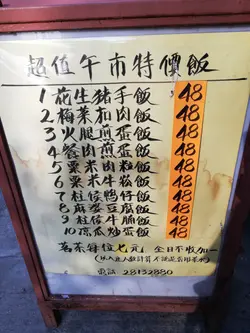 超值午市特價飯
1 花生豬手飯 48
2 梅菜扣肉飯 48
3 火腿煎蛋飯 48
4 餐肉煎蛋飯 48
5 粟米肉粒飯 48
6 粟米牛粒飯 48
7 柱侯鴨仔飯 48
8 麻婆豆腐飯 48
9 柱侯牛腩飯 48
10 凉瓜炒蛋飯 48
茗茶每位七元 全日不收加一
(以人數計算 不論是否用茶水)
電話 28152880